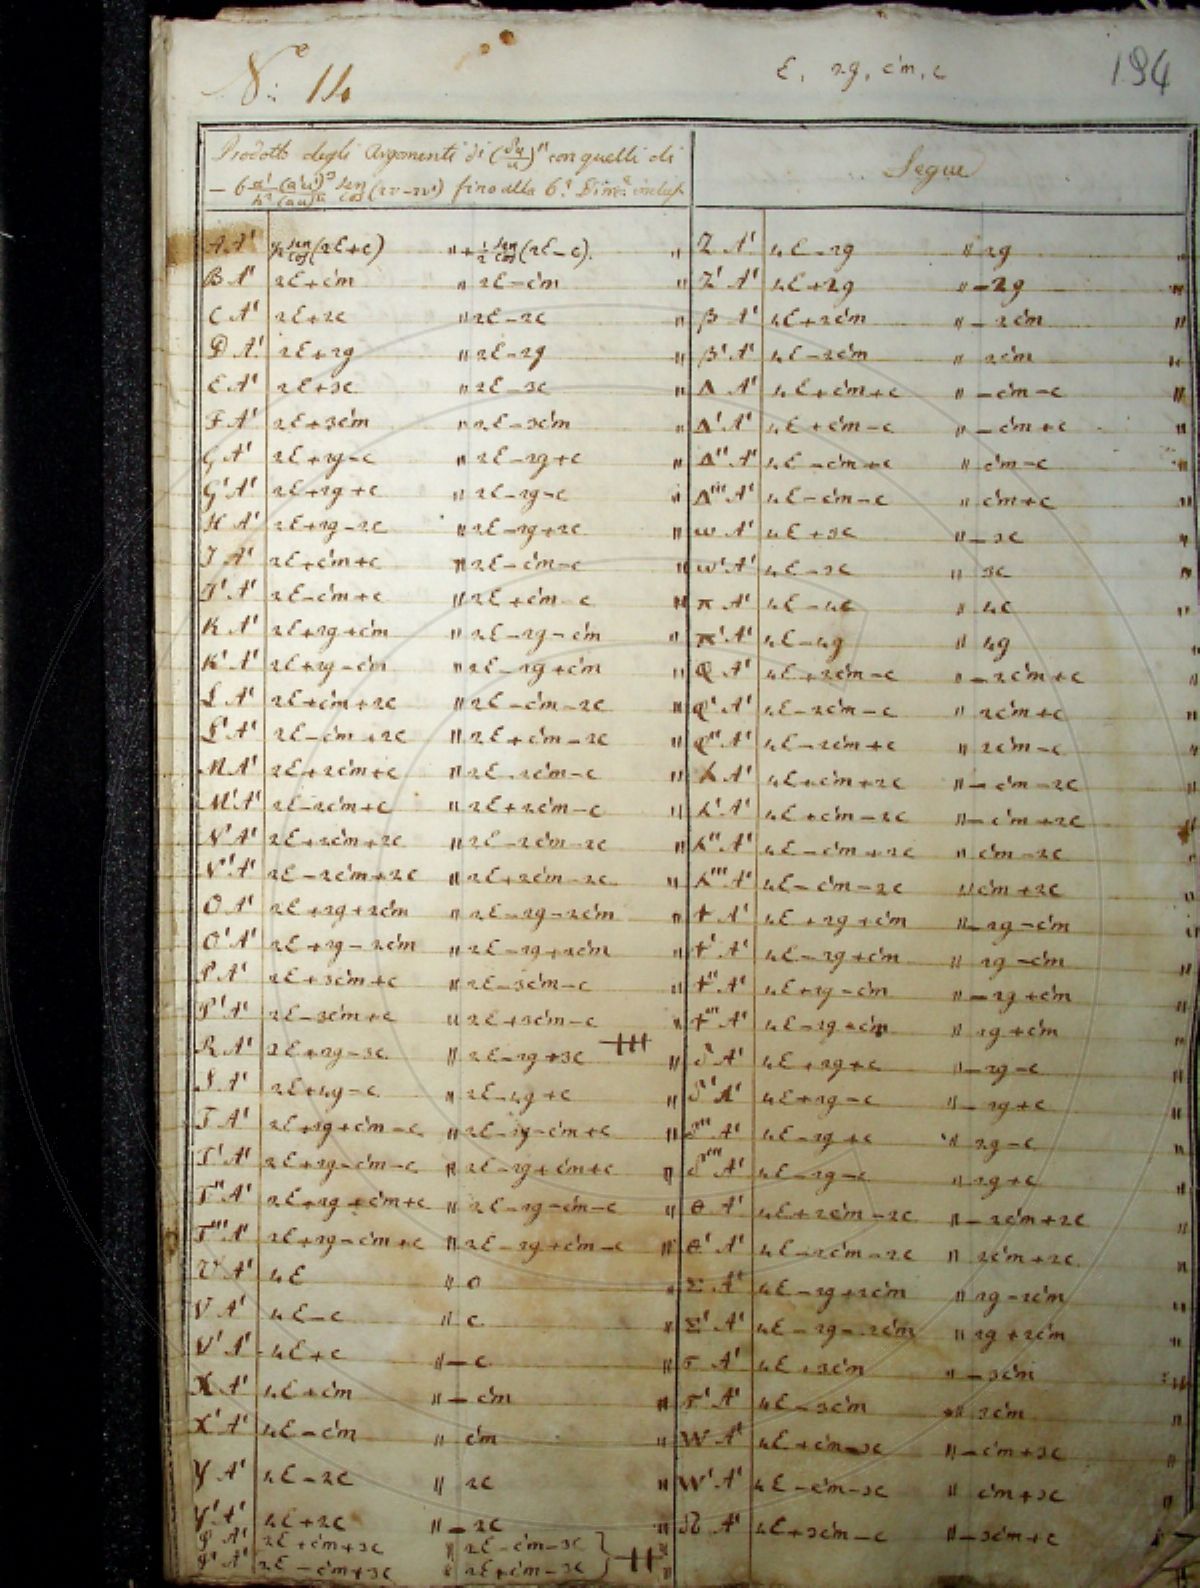 N.º 14
E, 2g, c'm, c
194
Prodotto degli Argomenti di (δu/u)" con quelli di
Segue
fino alla 6.ª Dim.e inclus.
A A' ½ sen/cos (2E+c) " + ½ sen/cos (2E–c). "
B A' 2E+c'm " 2E–c'm "
C A' 2E+2c " 2E–2c "
D A' 2E+2g " 2E–2g "
E A' 2E+3c " 2E–3c "
F A' 2E+3c'm " 2E–3c'm "
G A' 2E+2g–c " 2E–2g+c "
G' A' 2E+2g+c " 2E–2g–c "
H A' 2E+2g–2c " 2E–2g+2c "
I A' 2E+c'm+c " 2E–c'm–c "
I' A' 2E–c'm+c " 2E+c'm–c "
K A' 2E+2g+c'm " 2E–2g–c'm "
K' A' 2E+2g–c'm " 2E–2g+c'm "
L A' 2E+c'm+2c " 2E–c'm–2c "
L' A' 2E–c'm+2c " 2E+c'm–2c "
M A' 2E+2c'm+c " 2E–2c'm–c "
M' A' 2E–2c'm+c " 2E+2c'm–c "
N A' 2E+2c'm+2c " 2E–2c'm–2c "
N' A' 2E–2c'm+2c " 2E+2c'm–2c "
O A' 2E+2g+2c'm " 2E–2g–2c'm "
O' A' 2E+2g–2c'm " 2E–2g+2c'm "
P A' 2E+3c'm+c " 2E–3c'm–c "
P' A' 2E–3c'm+c " 2E+3c'm–c "
R A' 2E+2g–3c " 2E–2g+3c "
S A' 2E+4g–c " 2E–4g+c "
T A' 2E+2g+c'm–c " 2E–2g–c'm+c "
T' A' 2E+2g–c'm–c " 2E–2g+c'm+c "
T" A' 2E+2g+c'm+c " 2E–2g–c'm–c "
T''' A' 2E+2g–c'm+c " 2E–2g+c'm–c "
U A' 4E " 0
V A' 4E–c " c
V' A' 4E+c " –c
X A' 4E+c'm " –c'm "
X' A' 4E–c'm " c'm "
Y A' 4E–2c " 2c "
Y' A' 4E+2c " –2c "
A' 2E+c'm+3c " 2E–c'm–3c
A' 2E–c'm+3c " 2E+c'm–3c
Z A' 4E–2g " 2g "
Z' A' 4E+2g " –2g "
β A' 4E+2c'm " –2c'm "
β' A' 4E–2c'm " 2c'm "
Δ A' 4E+c'm+c " –c'm–c "
Δ' A' 4E+c'm–c " –c'm+c "
Δ" A' 4E–c'm+c " c'm–c "
Δ''' A' 4E–c'm–c " c'm+c "
ω A' 4E+3c " –3c "
ω' A' 4E–3c " 3c "
π A' 4E–4c " 4c "
π' A' 4E–4g " 4g "
Q A' 4E+2c'm–c " –2c'm+c "
Q' A' 4E–2c'm–c " 2c'm+c "
Q" A' 4E–2c'm+c " 2c'm–c "
λ A' 4E+c'm+2c " –c'm–2c "
λ' A' 4E+c'm–2c " –c'm+2c
λ" A' 4E–c'm+2c " c'm–2c "
λ''' A' 4E–c'm–2c " c'm+2c "
t A' 4E+2g+c'm " –2g–c'm "
t' A' 4E–2g+c'm " 2g–c'm "
t" A' 4E+2g–c'm " –2g+c'm "
t''' A' 4E–2g–c'm " 2g+c'm "
δ A' 4E+2g+c " –2g–c "
δ' A' 4E+2g–c " –2g+c "
δ" A' 4E–2g+c " 2g–c "
δ''' A' 4E–2g–c " 2g+c "
θ A' 4E+2c'm–2c " –2c'm+2c "
θ' A' 4E–2c'm–2c " 2c'm+2c "
Σ A' 4E–2g+2c'm " 2g–2c'm "
Σ' A' 4E–2g–2c'm " 2g+2c'm "
τ A' 4E+3c'm " –3c'm "
τ' A' 4E–3c'm " 3c'm "
W A' 4E+c'm–3c " –c'm+3c "
W' A' 4E–c'm–3c " c'm+3c "
Ω A' 4E+3c'm–c " –3c'm+c "